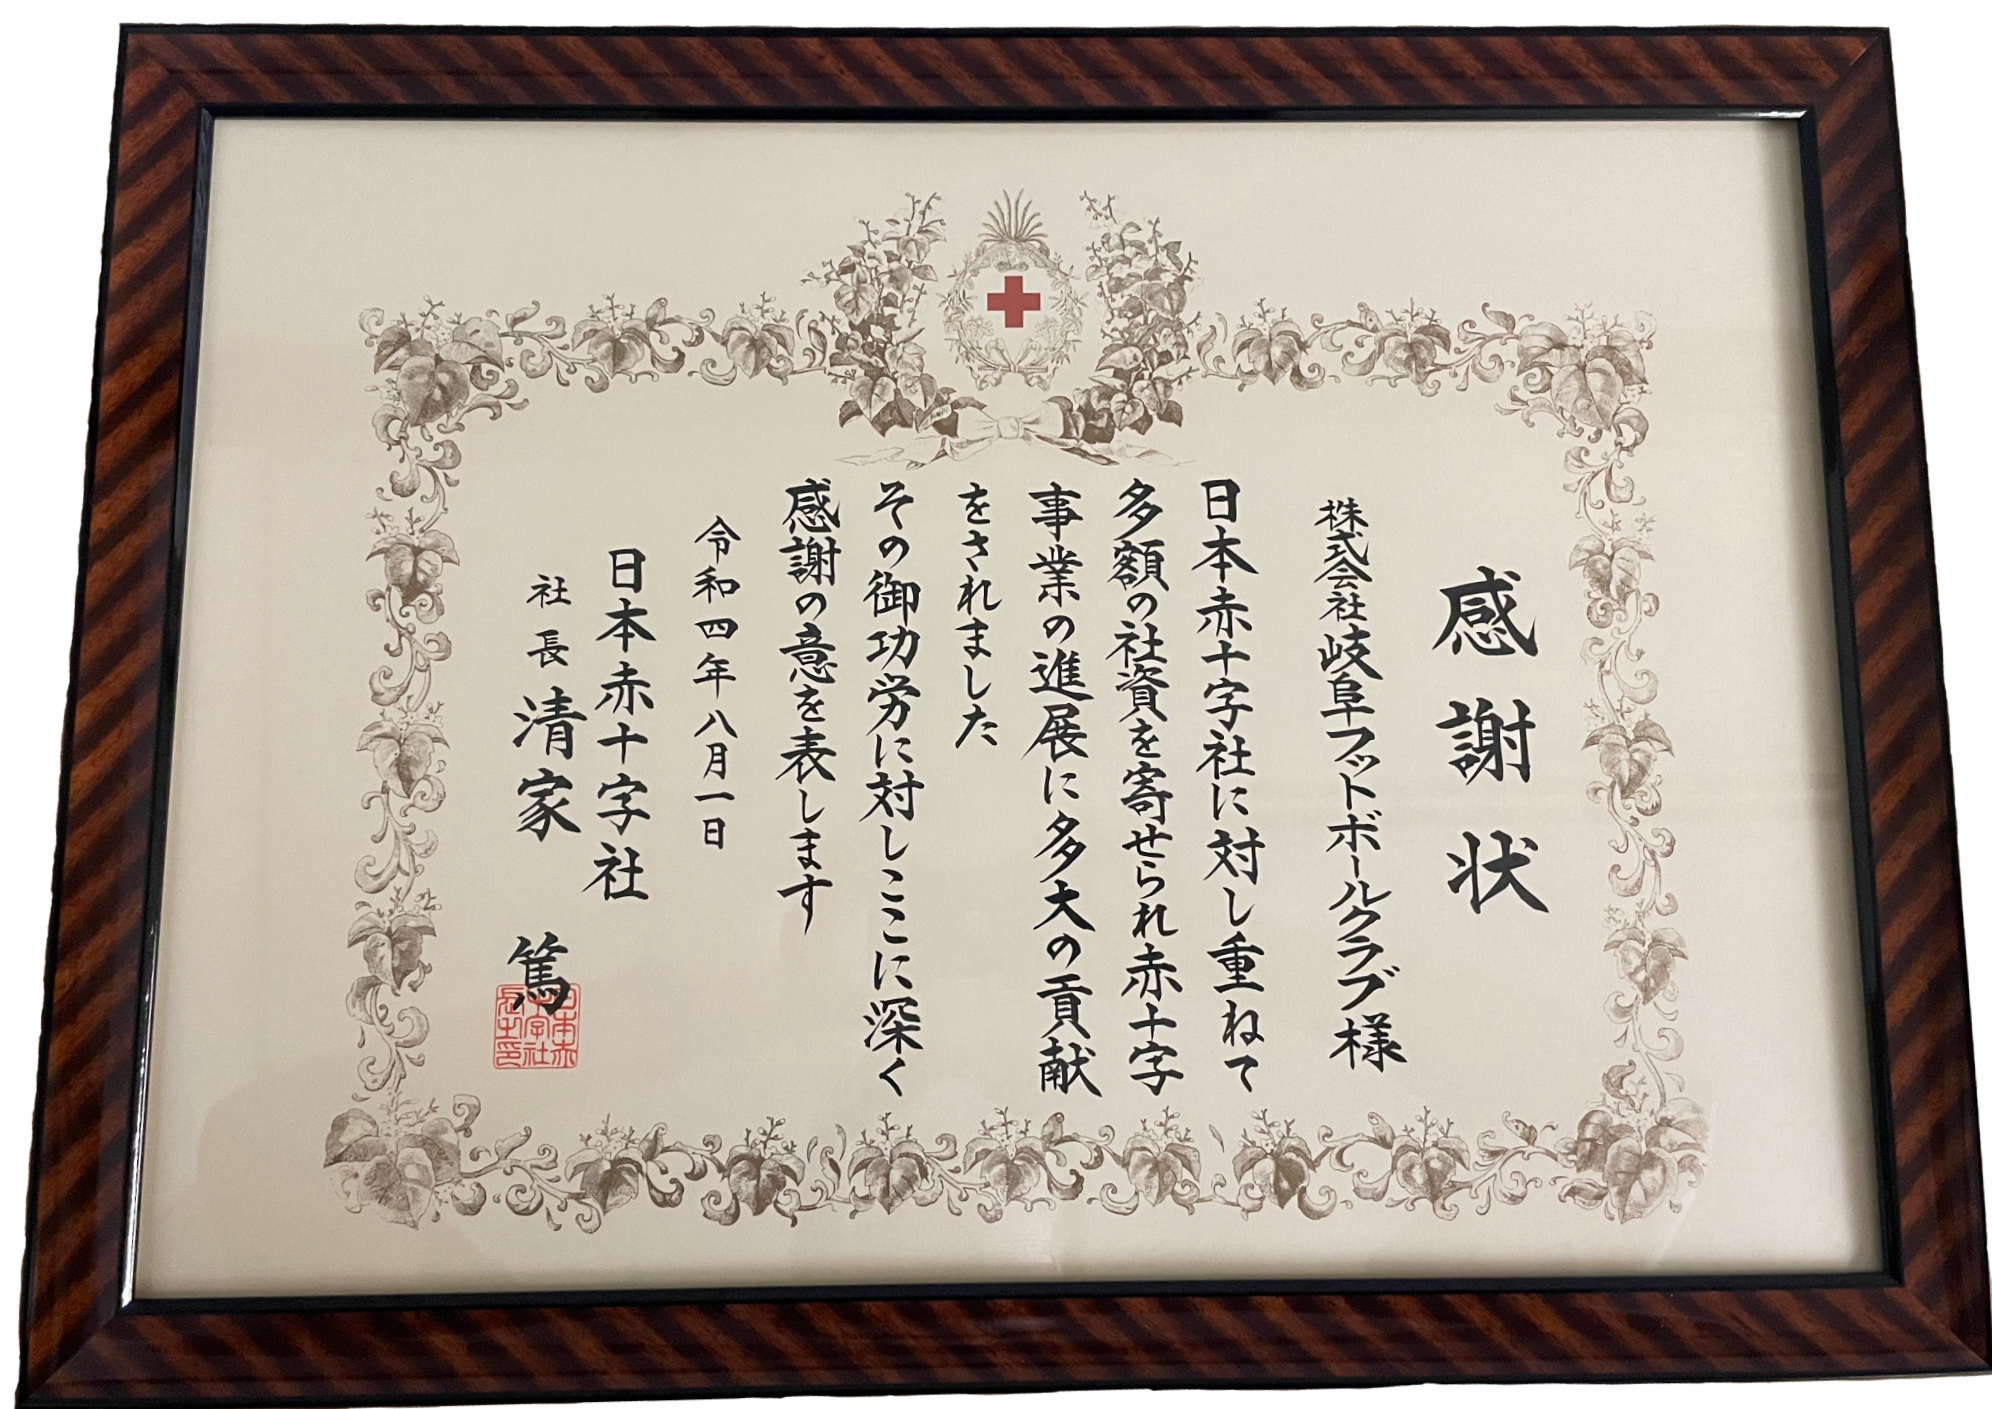 感謝状
株式会社岐阜フットボールクラブ様
日本赤十字社に対し重ねて
多額の社資を寄せられ赤十字
事業の進展に多大の貢献
をされました
その御功労に対しここに深く
感謝の意を表します
令和四年八月一日
日本赤十字社
社長 清家 篤
日本赤
十字社
長之印